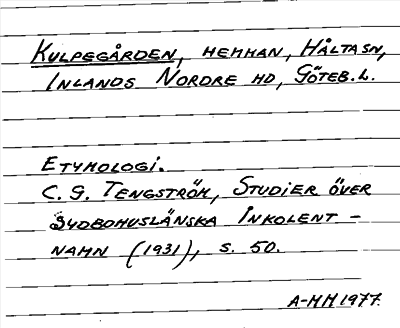 KULPEGÅRDEN, HEMMAN, HÅLTA SN,
INLANDS NORDRE HD, GÖTEB. L.
ETYMOLOGI.
C. G. TENGSTRÖM, STUDIER ÖVER
SYDBOHUSLÄNSKA INKOLENT-
NAMN (1931), S. 50.
A-MH 1977.